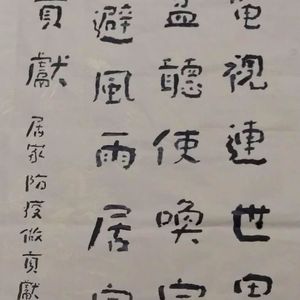 電視連世界
孟聽使喚
避風雨居家
貢獻
居家防疫做貢獻